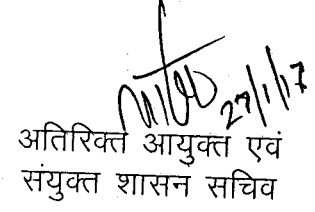 27/1/17
अतिरिक्त आयुक्त एवं
संयुक्त शासन सचिव